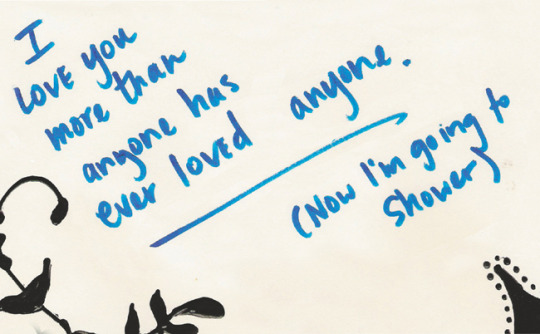 I
LOVE YOU
more than
anyone has
ever loved anyone.
(Now I'm going to
Shower)